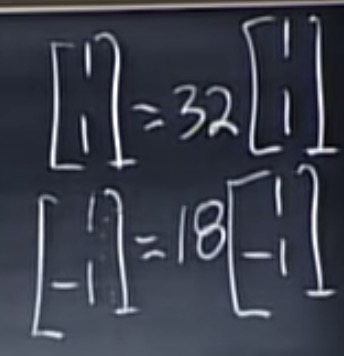 [1
1] = 32 [1
1]
[1
-1] = 18 [1
-1]